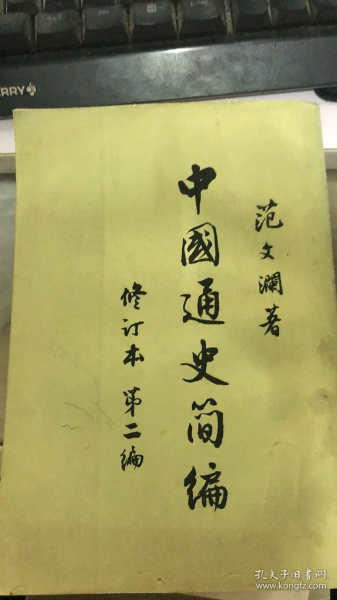 范文澜著
中國通史简编
修订本 第二编
ERRY
孔夫子旧书网
www.kongfz.com